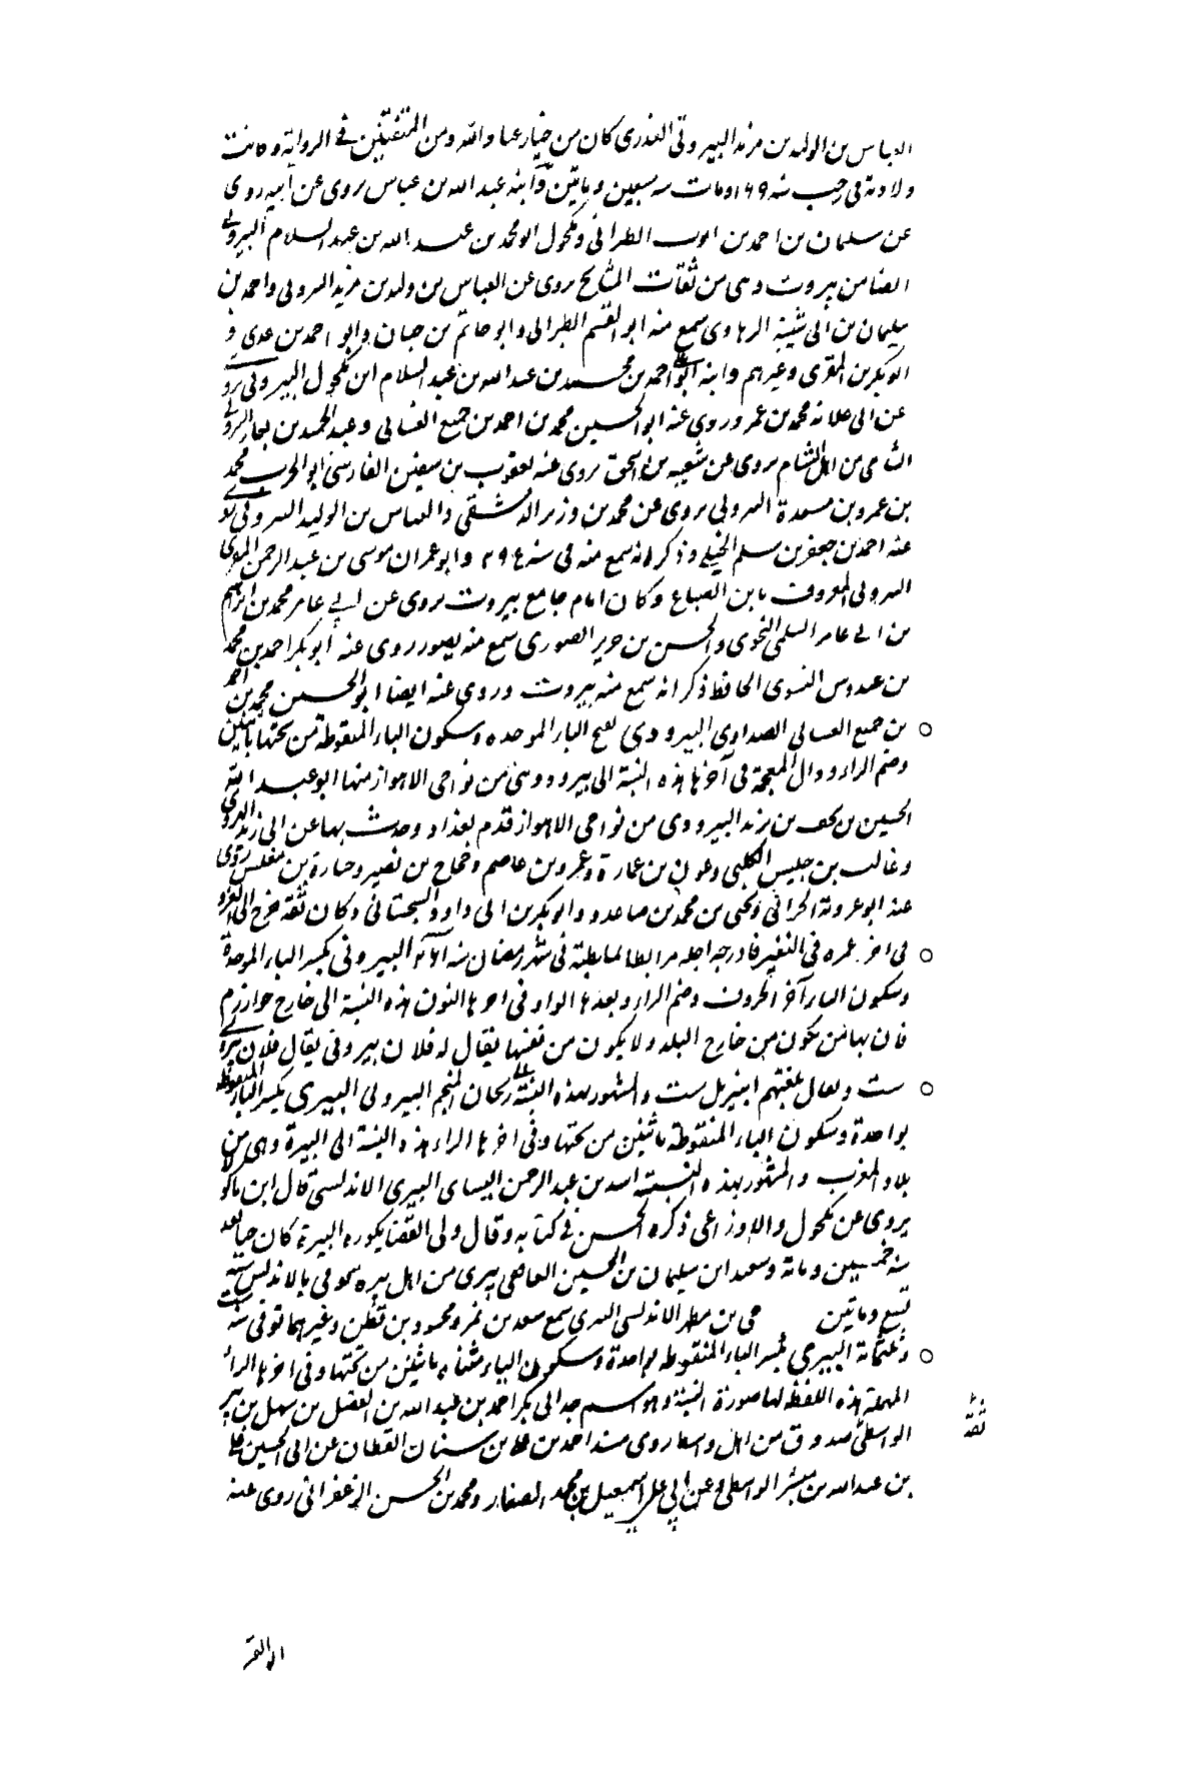 العباس بن الوليد بن مزيد البيروتي العذري كان من خيار عباد الله ومن المتقنين في الرواية وكانت
ولادته في رجب سنة ١٦٩ ومات سنة سبعين ومأتين وابنه عبد الله بن عباس يروي عن أبيه روى
عن سليمان بن احمد بن ايوب الطبراني ومكحول ابو محمد بن عبد الله بن عبد السلام البيروتي
ايضا من بيروت وهي من ثقات المشايخ يروى عن العباس بن وليد بن مزيد البيروتي واحمد بن
سليمان بن ابي شيبة الرهاوى سمع منه ابو القسم الطبراني وابو حاتم بن حبان وابو احمد بن عدي و
ابو بكر بن المقرى وغيرهم وابنه احمد بن محمد بن عبد الله بن عبد السلام ابن مكحول البيروتي يروى
عن ابي علاثه محمد بن عمرو روى عنه ابو الحسين محمد بن احمد بن جميع الغساني وعبد الحميد بن بكار البيروتي
الشامي من اهل الشام يروى عن شعيب بن اسحق روى عنه يعقوب بن سفين الفارسي ابو الحرث محمد
بن عمرو بن مسعدة البيروتي يروى عن محمد بن وزير الدمشقي والعباس بن الوليد البيروتي روى
عنه احمد بن جعفر بن سلم الختلي وذكر انه سمع منه في سنة ٢٩٤ وابو عمران موسى بن عبد الرحمن المقرى
البيروتي المعروف بابن الصباغ وكان امام جامع بيروت يروى عن ابي عامر محمد بن ابراهيم
بن ابي عامر السلمي النحوى والحسن بن جرير الصورى سمع منه بصور روى عنه أبو بكر احمد بن محمد
بن عبدوس النسوى الحافظ ذكر انه سمع منه ببيروت وروى عنه ايضا ابو الحسين محمد بن احمد
بن جميع الغساني الصيداوي البيروذي بفتح الباء الموحده وسكون الياء المنقوطة من تحتها باثنتين
وضم الراء وذال المعجمة في آخرها هذه النسبة الى بيروذ وهى من نواحى الاهواز منها ابو عبد الله
الحسين بن بحر بن يزيد البيروذي من نواحى الاهواز قدم بغداد وحدث بها عن ابي زيد الهروى
وغالب بن حلبس الكلبي وعون بن عمارة وعمرو بن عاصم وحجاج بن نصير وجبارة بن مغلس روى
عنه ابو عروبة الحراني ويحيى بن محمد بن صاعد وابو بكر بن ابي داود السجستاني وكان ثقة خرج الى الغزو
في اخر عمره في النفير فادركه اجله مرابطا بملطية في شهر رمضان سنة ٢٦١ البيروني بكسر الباء الموحدة
وسكون الياء آخر الحروف وضم الراء وبعدها الواو في اخرها النون هذه النسبة الى خارج خوارزم
فان بها من يكون من خارج البلد ولا يكون من نفسها يقال له فلان بيروني يقال فلان بيرو
ست ويقال بلغتهم انبيزل ست والمشهور بهذه النسبة ابو ريحان المنجم البيروني البيري بكسر الباء المنقوطة
بواحدة وسكون الياء المنقوطة باثنتين من تحتها وفي اخرها الراء هذه النسبة الى البيرة وهى من
بلاد المغرب والمشهور بهذه النسبة اسد بن عبد الرحمن البيرى الاندلسي قال ابن ماكولا
يروى عن مكحول والاوزاعى ذكره الحسن في كتابه وقال ولي القضا بكورة البيرة كان حيا بعد
سنة خمسين ومائة وسعيد ابن سليمان بن الحسين العاصى بيرى من اهل بيره توفى بالاندلس سنة
تسع ومايتين بن مطهر الاندلسي البيري سمع سعد بن نمر ومحمود بن قطن وغيرهما توفى سنة
وثلثمائة البيري بكسر الباء المنقوطه بواحدة وسكون الياء مثناه باثنتين من تحتها وفي اخرها الراء
المهملة هذه اللفظه لها صورة النسبة وهو اسم جد ابي بكر احمد بن عبيد الله بن الفضل بن سهل بن بيرى
الواسطى صدوق من اهل واسط روى مسند احمد بن سنان القطان عن ابي الحسين على
ثقة
بن عبد الله بن مبشر الواسطي وعن ابي علي اسمعيل بن محمد الصفار ومحمد بن الحسن الزعفراني روى عنه
ابو القسم